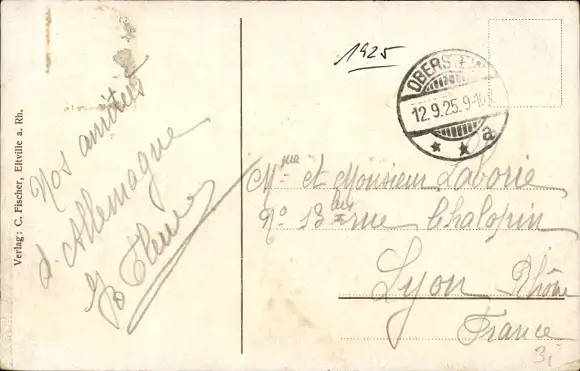 1925
OBERSTEIN
12.9.25.9-10
* * a
Nos amitiés
d'Allemagne
Mme et Monsieur Laborie
No 13 bis rue Chalopin
Lyon Rhône
France
3,-
Verlag: C. Fischer, Eltville a. Rh.